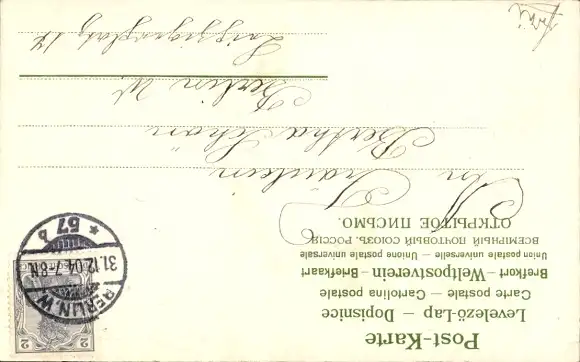 Post-Karte
Levelező-Lap – Dopisnice
Carte postale – Cartolina postale
Brefkort – Weltpostverein – Brevkaart
Union postale universelle – Unione postale universale
ВСЕМІРНЫЙ ПОЧТОВЫЙ СОЮЗЪ. РОССІЯ.
ОТКРЫТОЕ ПИСЬМО.
An
Fräulein
Bertha Schön
Berlin W.
Leipzigerplatz 12
BERLIN, W.
31.12.04. 7-8 N.
* 57 b
2 2